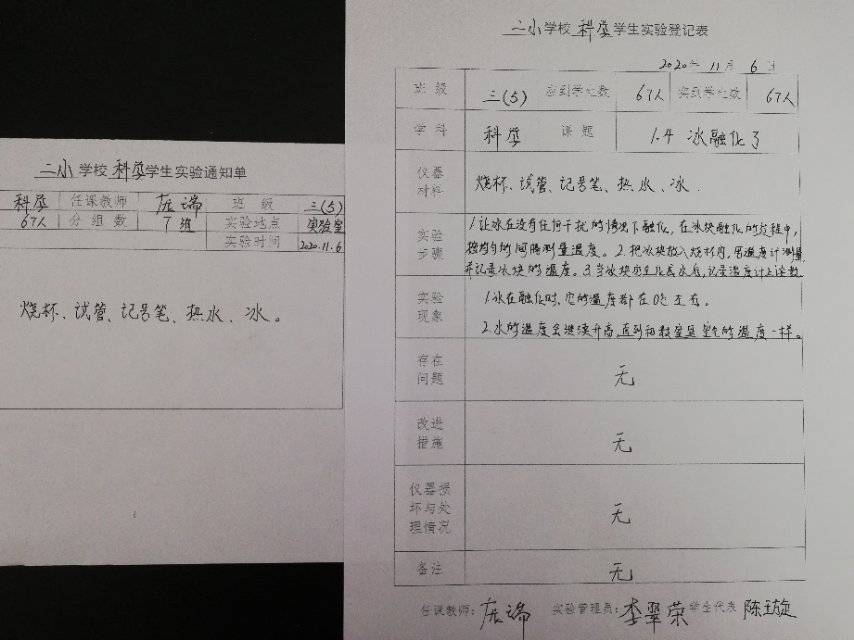 二小学校科学学生实验通知单
科学 任课教师 庞瑞 班级 三(5)
67人 分组数 7组 实验地点 实验室
实验时间 2020.11.6
烧杯、试管、记号笔、热水、冰。
二小学校科学学生实验登记表
2020年11月6日
班级 三(5) 应到学生数 67人 实到学生数 67人
学科 科学 课题 1.4 冰融化了
仪器
材料
烧杯、试管、记号笔、热水、冰.
实验
步骤
1.让冰在没有任何干扰的情况下融化,在冰块融化的过程中,
按均匀的间隔测量温度。2.把冰块放入烧杯内,用温度计测量
并记录冰块的温度。3.当冰块完全化成水后,记录温度计上读数
实验
现象
1.冰在融化时,它的温度都在0℃左右。
2.水的温度会继续升高,直到和教室里空气的温度一样。
存在
问题
无
改进
措施
无
仪器损
坏与处
理情况
无
备注 无
任课教师:庞瑞 实验管理员:李翠荣 学生代表 陈玉璇